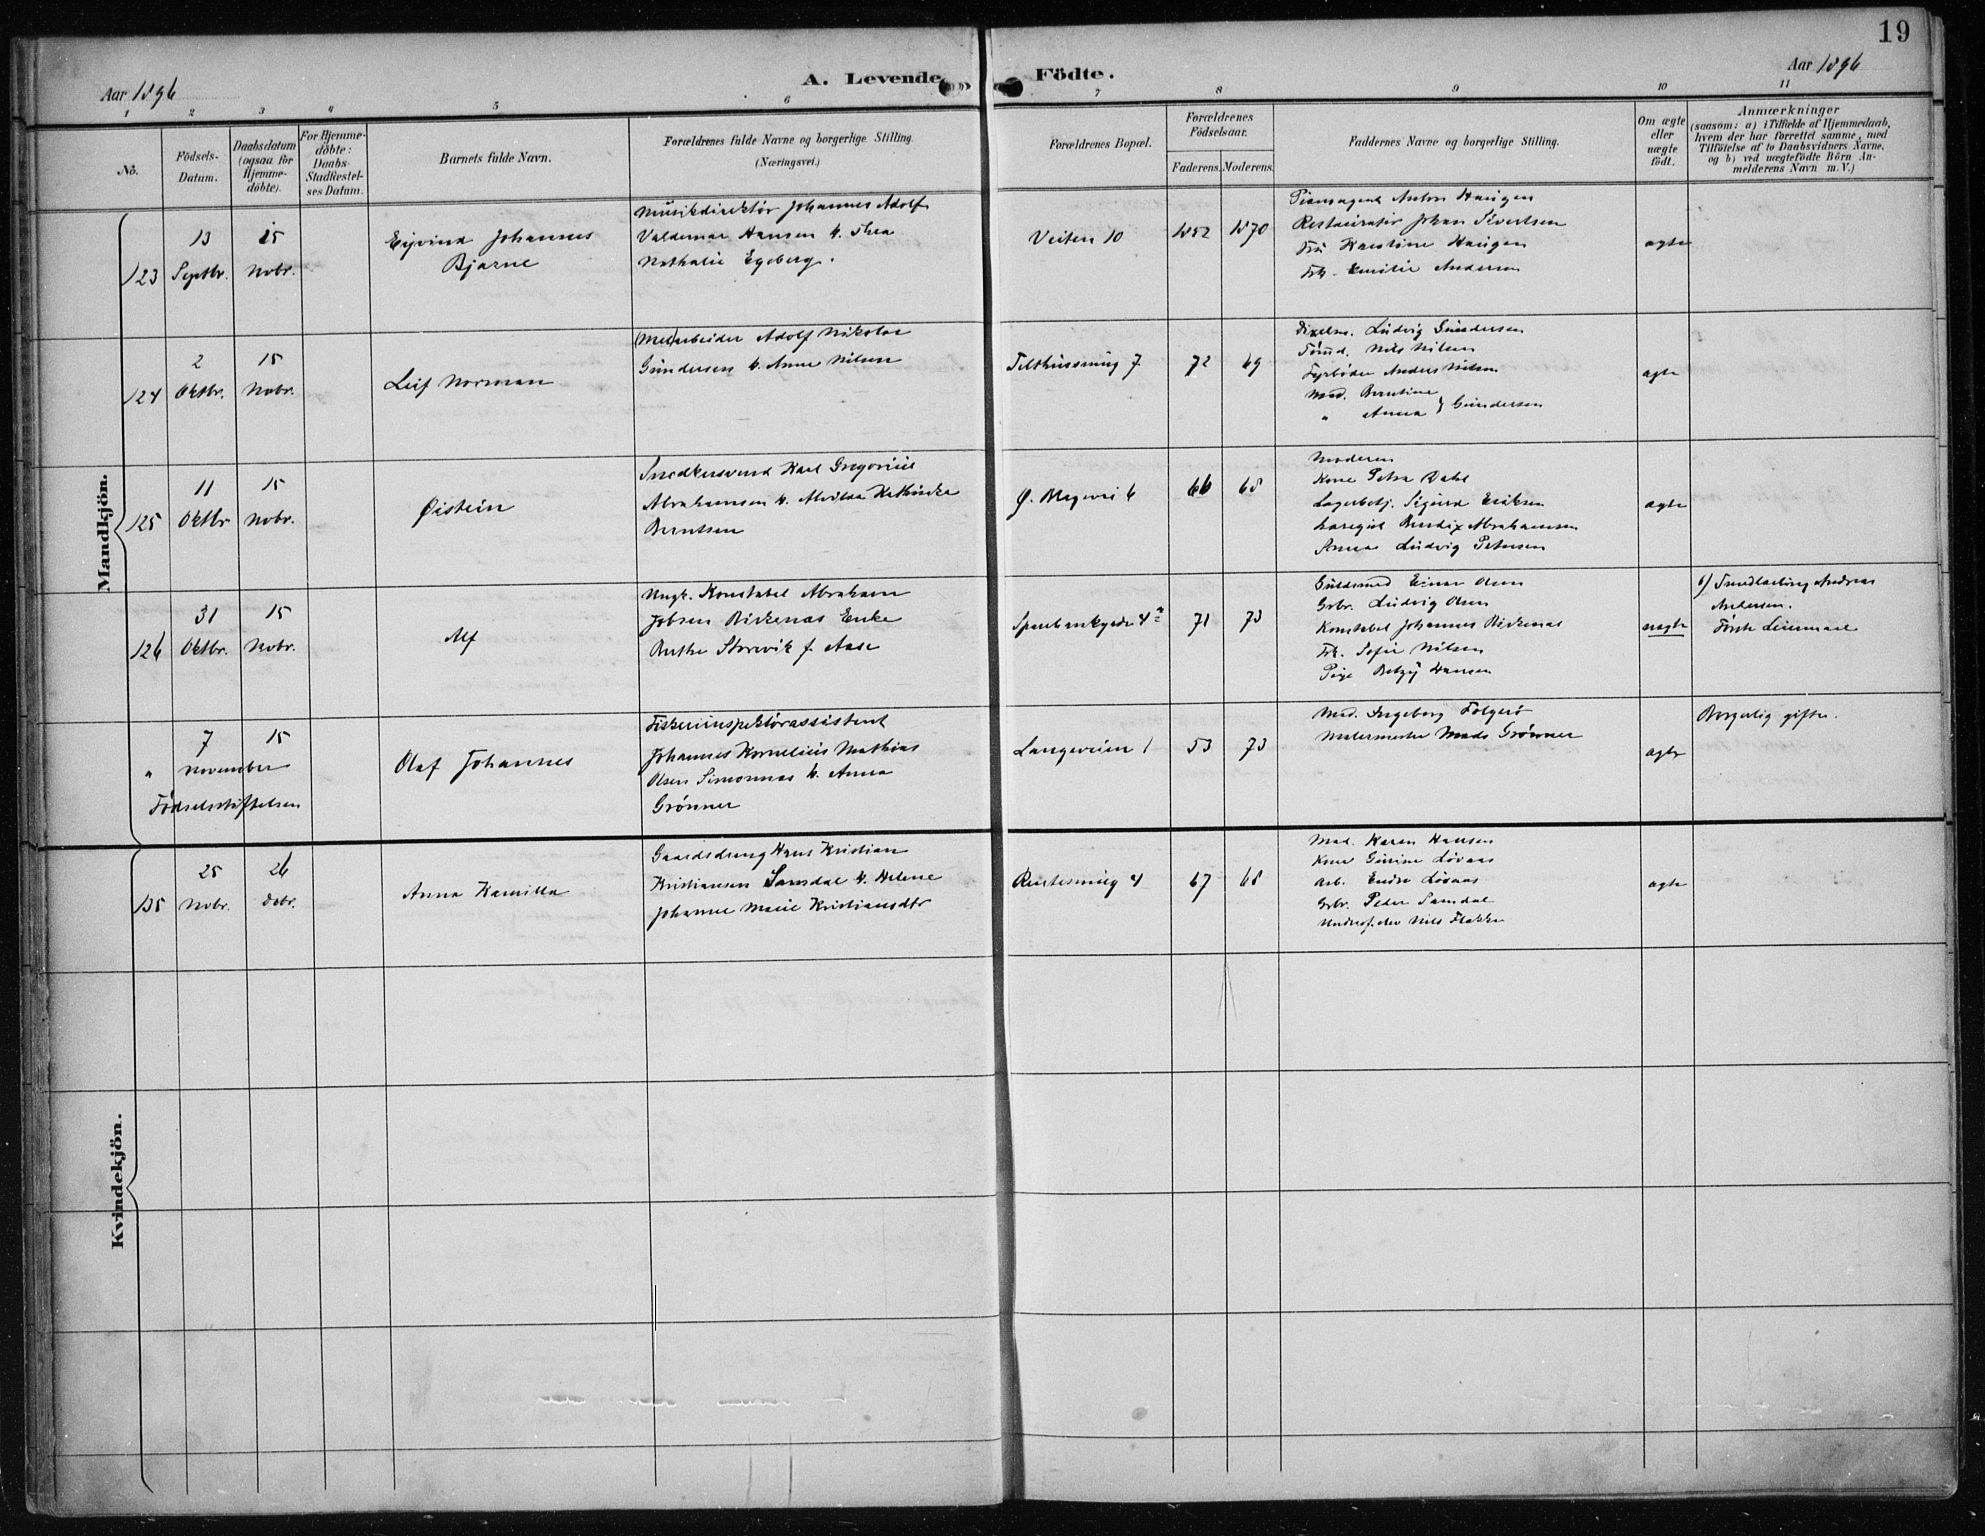 19
Aar 1896
A. Levende
Födte.
Aar 1896
1 2 3 4 5 6 7 8 9 10 11
No.
Födsels-
Datum.
Daabsdatum
(ogsaa for
Hjemme-
döbte).
For Hjemme-
döbte:
Daabs-
Stadfæstel-
ses Datum.
Barnets fulde Navn.
Forældrenes fulde Navne og borgerlige Stilling.
(Næringsvei.)
Forældrenes Bopæl.
Forældrenes
Födselsaar.
Faderens. Moderens.
Faddernes Navne og borgerlige Stilling.
Om ægte
eller
uægte
födt.
Anmærkninger
(saasom: a) i Tilfælde af Hjemmedaab,
hvem der har forrettet samme, med
Tilföielse af to Daabsvidners Navne,
og b) ved uægtefödte Börn An-
melderens Navn m. V.)
Mandkjön.
123
13
Septbr.
15
Novbr.
Eyvind Johannes
Bjarne
Musikdirektör Johannes Adolf
Valdemar Hansen & Thea
Nathalie Egeberg.
Veiten 10
1852
1870
Pianoagent Anton Haugen
Restauratör Johan Sivertsen
Fru Karoline Haugen
Frk. Emilie Andersen
ægte
124
2
Oktbr.
15
Novbr.
Leif Norman
arbeider Adolf Nikolai
Gundersen & Anne Nilsen
Telthussmug 7
72
69
Ludvig Gundersen
Tömd. Nils Nilsen
Fyrböder Anders Nilsen
Mad. Berntine
" Anna } Gundersen
ægte
125
11
Oktbr
15
Novbr.
Øistein
Snedkersvend Karl Gregorius
Abrahamsen & Alvilda Kathinka
Berntsen
Ø. Blegevei 6
66
68
Moderen
Kone Petra Dahl
Lagerbetj. Sigurd Eriksen
Bendix Abrahamsen
Ludvig Petersen
ægte
126
31
Oktbr.
15
Novbr.
Alf
Ungk. Konstabel Abraham
Jobsen Birkenæs Enke
Berthe Storevik f. Aase
Sparebankgade 4a
71
73
Guldsmed Einar Olsen
Grbr. Ludvig Olsen
Konstabel Johannes Birkenæs
Frk. Sofie Nilsen
Pige Betzy Hansen
uægte
b) Smedlærling Andreas
Andersen.
Förste Leiermaal
"
7
November
15
Födselsstiftelsen
Olaf Johannes
Fiskeriinspektörassistent
Johannes Kornelius Mathias
Olsen Simonnæs & Anna
Grönner
Langeveien 1
53
73
Mad. Ingeborg Folgerö
Malermester Mads Grönner
ægte
Borgerlig gifte.
Kvindekjön.
135
25
Novbr.
26
Debr.
Anna Kamilla
Gaardsdreng Hans Kristian
Kristiansen Samdal & Helene
Johanne Marie Kristiansdtr
Rentesmug 4
67
68
Mad. Karen Hansen
Kone Gurine Lövaas
Arb. Endre Lövaas
Grbr. Peder Samdal
Nils Flakke
ægte